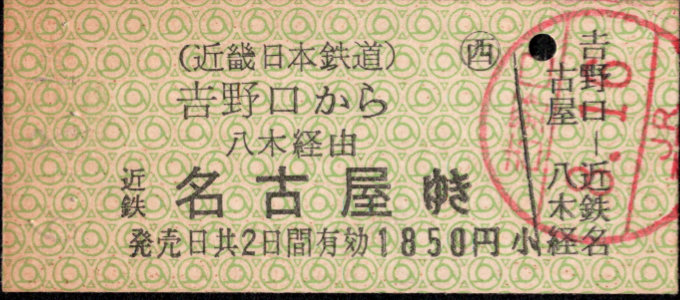 (近畿日本鉄道) 西
吉野口から
八木経由
近鉄 名古屋ゆき
発売日共2日間有効1850円 小
吉野口—近鉄名
古屋 八木経
8.16
JR